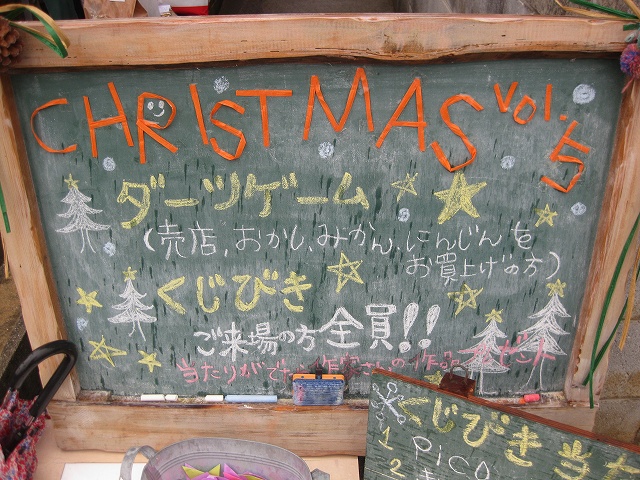 CHRISTMAS vol.5
ダーツゲーム
(売店、おかし、みかん、にんじんを
お買上げの方)
くじびき
ご来場の方全員!!
当たりがで
くじびき当た
1 Pico
2